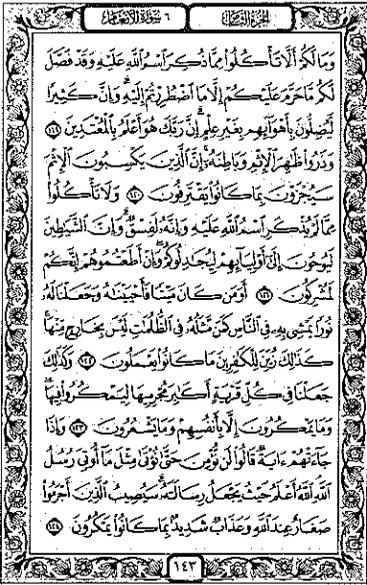 الجزء الثامن ٦ سورة الأنعام
وَمَا لَكُمْ أَلَّا تَأْكُلُوا۟ مِمَّا ذُكِرَ ٱسْمُ ٱللَّهِ عَلَيْهِ وَقَدْ فَصَّلَ
لَكُم مَّا حَرَّمَ عَلَيْكُمْ إِلَّا مَا ٱضْطُرِرْتُمْ إِلَيْهِ ۗ وَإِنَّ كَثِيرًا
لَّيُضِلُّونَ بِأَهْوَآئِهِم بِغَيْرِ عِلْمٍ ۗ إِنَّ رَبَّكَ هُوَ أَعْلَمُ بِٱلْمُعْتَدِينَ ١١٩
وَذَرُوا۟ ظَـٰهِرَ ٱلْإِثْمِ وَبَاطِنَهُۥٓ ۚ إِنَّ ٱلَّذِينَ يَكْسِبُونَ ٱلْإِثْمَ
سَيُجْزَوْنَ بِمَا كَانُوا۟ يَقْتَرِفُونَ ١٢٠ وَلَا تَأْكُلُوا۟
مِمَّا لَمْ يُذْكَرِ ٱسْمُ ٱللَّهِ عَلَيْهِ وَإِنَّهُۥ لَفِسْقٌ ۗ وَإِنَّ ٱلشَّيَـٰطِينَ
لَيُوحُونَ إِلَىٰٓ أَوْلِيَآئِهِمْ لِيُجَـٰدِلُوكُمْ ۖ وَإِنْ أَطَعْتُمُوهُمْ إِنَّكُمْ
لَمُشْرِكُونَ ١٢١ أَوَمَن كَانَ مَيْتًا فَأَحْيَيْنَـٰهُ وَجَعَلْنَا لَهُۥ
نُورًا يَمْشِى بِهِۦ فِى ٱلنَّاسِ كَمَن مَّثَلُهُۥ فِى ٱلظُّلُمَـٰتِ لَيْسَ بِخَارِجٍ مِّنْهَا ۚ
كَذَٰلِكَ زُيِّنَ لِلْكَـٰفِرِينَ مَا كَانُوا۟ يَعْمَلُونَ ١٢٢ وَكَذَٰلِكَ
جَعَلْنَا فِى كُلِّ قَرْيَةٍ أَكَـٰبِرَ مُجْرِمِيهَا لِيَمْكُرُوا۟ فِيهَا ۖ
وَمَا يَمْكُرُونَ إِلَّا بِأَنفُسِهِمْ وَمَا يَشْعُرُونَ ١٢٣ وَإِذَا
جَآءَتْهُمْ ءَايَةٌ قَالُوا۟ لَن نُّؤْمِنَ حَتَّىٰ نُؤْتَىٰ مِثْلَ مَآ أُوتِىَ رُسُلُ
ٱللَّهِ ۘ ٱللَّهُ أَعْلَمُ حَيْثُ يَجْعَلُ رِسَالَتَهُۥ ۗ سَيُصِيبُ ٱلَّذِينَ أَجْرَمُوا۟
صَغَارٌ عِندَ ٱللَّهِ وَعَذَابٌ شَدِيدٌۢ بِمَا كَانُوا۟ يَمْكُرُونَ ١٢٤
١٤٣